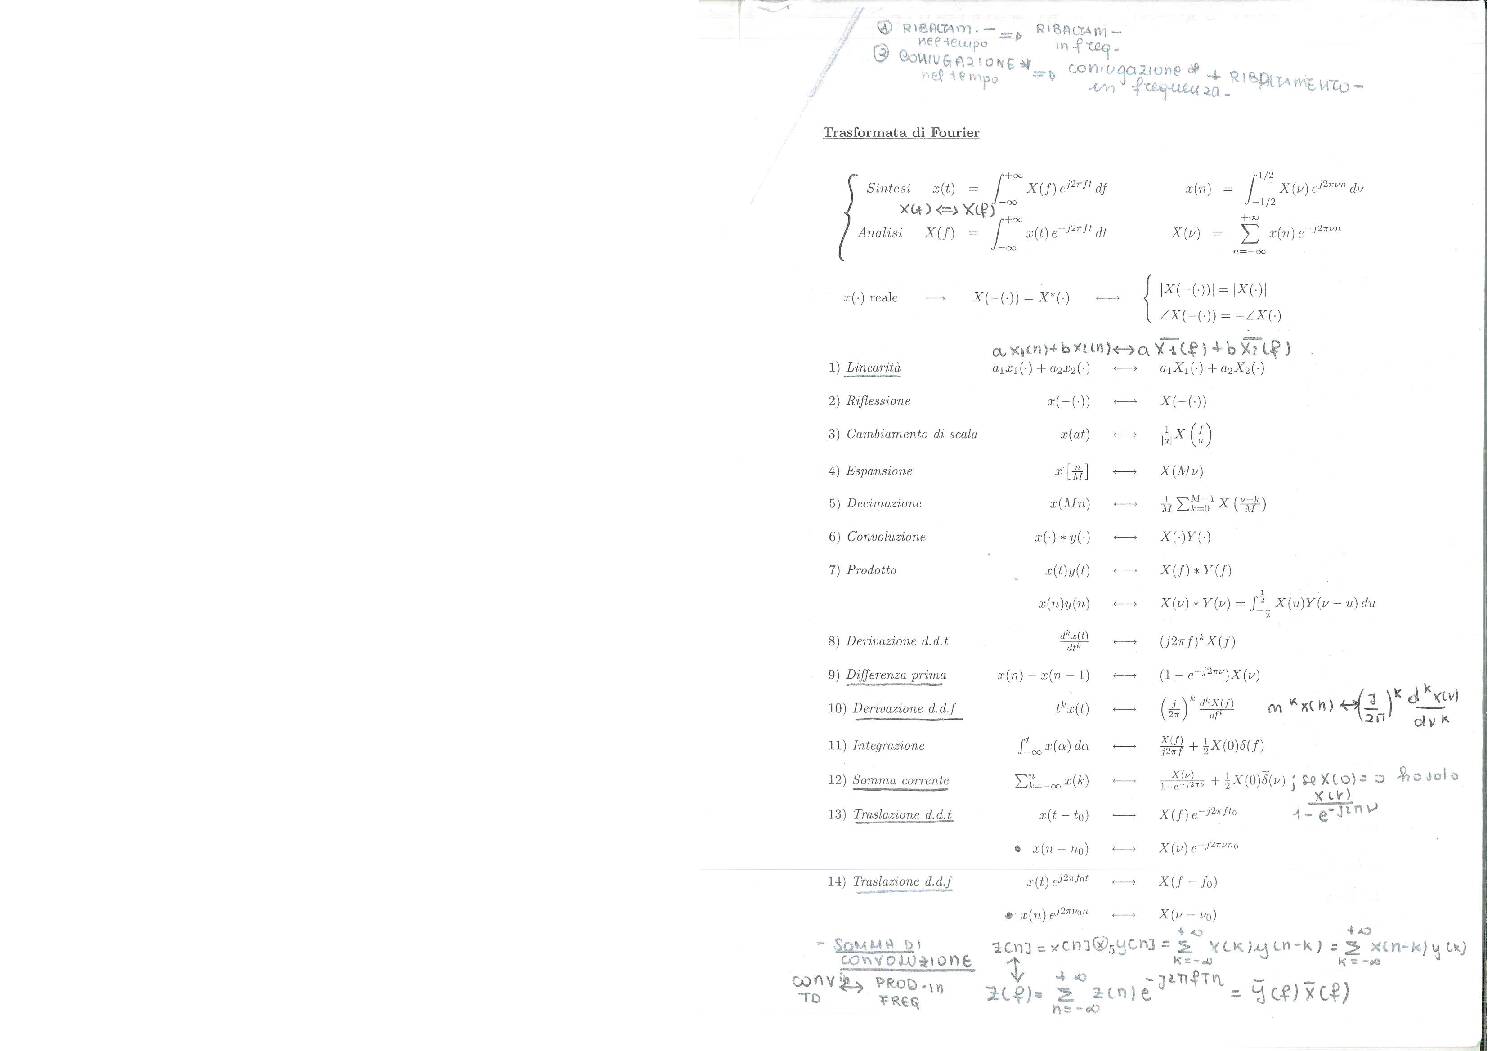 ① RIBALTAM. — => RIBALTAM —
nel tempo in freq.
② CONIUGAZIONE * => coniugazione * + RIBALTAMENTO —
nel tempo in frequenza.
Trasformata di Fourier
Sintesi x(t) = ∫_{−∞}^{+∞} X(f) e^{j2πft} df x(n) = ∫_{−1/2}^{1/2} X(ν) e^{j2πνn} dν
x(t) <=> X(f)
Analisi X(f) = ∫_{−∞}^{+∞} x(t) e^{−j2πft} dt X(ν) = ∑_{n=−∞}^{+∞} x(n) e^{−j2πνn}
x(·) reale ⟶ X(−(·)) = X*(·) ⟷ { |X(−(·))| = |X(·)|
∠X(−(·)) = −∠X(·)
a x₁(n) + b x₂(n) ↔ a X̄₁(f) + b X̄₂(f)
1) Linearità a₁x₁(·) + a₂x₂(·) ⟷ a₁X₁(·) + a₂X₂(·)
2) Riflessione x(−(·)) ⟷ X(−(·))
3) Cambiamento di scala x(at) ⟷ 1/|a| X(f/a)
4) Espansione x[n/M] ⟷ X(Mν)
5) Decimazione x(Mn) ⟷ 1/M ∑_{k=0}^{M−1} X((ν−k)/M)
6) Convoluzione x(·) ∗ y(·) ⟷ X(·)Y(·)
7) Prodotto x(t)y(t) ⟷ X(f) ∗ Y(f)
x(n)y(n) ⟷ X(ν) ∗ Y(ν) = ∫_{−1/2}^{1/2} X(u)Y(ν − u) du
8) Derivazione d.d.t d^k x(t)/dt^k ⟷ (j2πf)^k X(f)
9) Differenza prima x(n) − x(n − 1) ⟷ (1 − e^{−j2πν})X(ν)
10) Derivazione d.d.f t^k x(t) ⟷ (j/2π)^k d^k X(f)/df^k n^k x(n) ↔ (j/2π)^k d^k X(ν)/dν^k
11) Integrazione ∫_{−∞}^{t} x(α) dα ⟷ X(f)/j2πf + 1/2 X(0)δ(f)
12) Somma corrente ∑_{k=−∞}^{n} x(k) ⟷ X(ν)/(1−e^{−j2πν}) + 1/2 X(0)δ̃(ν) ; se X(0)=0 ho solo
X(ν)/(1 − e^{−j2πν})
13) Traslazione d.d.t x(t − t₀) ⟷ X(f) e^{−j2πft₀}
• x(n − n₀) ⟷ X(ν) e^{−j2πνn₀}
14) Traslazione d.d.f x(t) e^{j2πf₀t} ⟷ X(f − f₀)
• x(n) e^{j2πν₀n} ⟷ X(ν − ν₀)
- SOMMA DI z[n] = x[n] ⊛ y[n] = ∑_{k=−∞}^{+∞} x(k) y(n−k) = ∑_{k=−∞}^{+∞} x(n−k) y(k)
CONVOLUZIONE
CONV in ↔ PROD. in Z(f) = ∑_{n=−∞}^{+∞} z(n) e^{−j2πfTn} = Ȳ(f) X̄(f)
TD FREQ